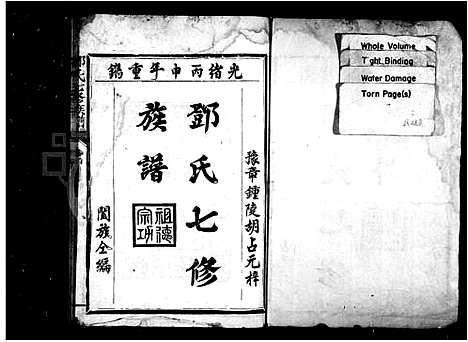 光緒丙申年重鐫
豫章鍾陵胡占元梓
鄧氏七修
族譜
祖德
宗功
闔族全編
Whole Volume
Tight Binding
Water Damage
Torn Page(s)